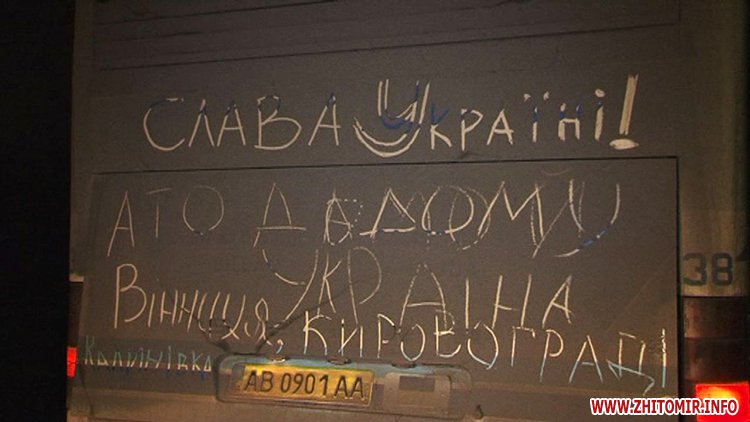 СЛАВА УКРАЇНІ!
АТО ДАДОМУ
УКРАЇНА
ВІННИЦЯ, КИРОВОГРАД
КАЛИНІВКА
АВ 0901 АА
38
WWW.ZHITOMIR.INFO